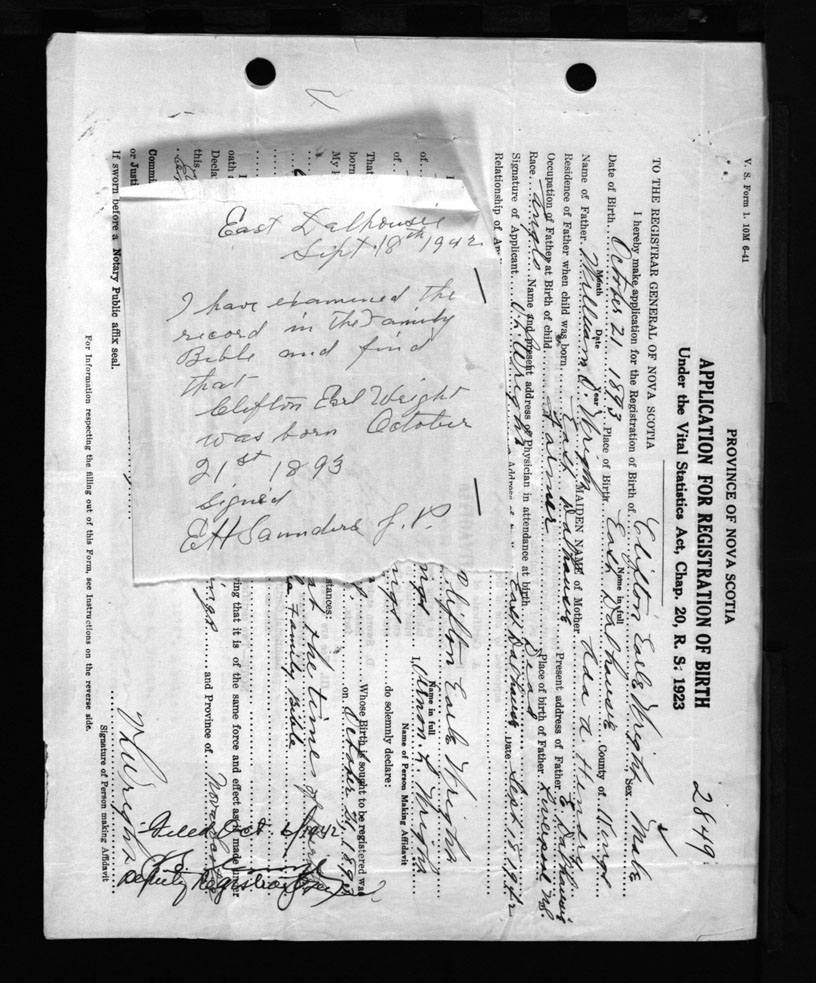 East Dalhousie
Sept. 18th 1942
I have examined the
record in the Family
Bible and find
that
Clifton Earl Wright
was born October
21st 1893
Signed
EH Saunders J.P.
V. S. Form 1. 10M 6-41
PROVINCE OF NOVA SCOTIA
APPLICATION FOR REGISTRATION OF BIRTH
Under the Vital Statistics Act, Chap. 20, R. S. 1923
2849
TO THE REGISTRAR GENERAL OF NOVA SCOTIA
I hereby make application for the Registration of Birth of Clifton Earle Wright Sex Male
Name in full
Date of Birth October 21 1893 Place of Birth East Dalhousie County of Kings
Month Date Year
Name of Father William Wright MAIDEN NAME of Mother Ada
Residence of Father when child was born East Dalhousie Present address of Father E. Dalhousie
Occupation of Father at Birth of child Farmer Place of birth of Father Liverpool NS.
Race Anglo Name and present address of Physician in attendance at birth Dead
Signature of Applicant Wright Address East Dalhousie Date Sept 18 1942
Relationship of
of Clifton Earle Wright
Name in full
of I, Vernon L Wright
Name of Person Making Affidavit
of do solemnly declare:
That Whose Birth is sought to be registered was
born on October 21, 1893
My
at the time of
Family Bible
oath ring that it is of the same force and effect as if made under
Decla
this and Province of Nova Scotia
Commi
or Justi
If sworn before a Notary Public affix seal.
V L Wright
Signature of Person making Affidavit
Filed Oct 1942
Deputy Registrar
For Information respecting the filling out of this Form, see Instructions on the reverse side.